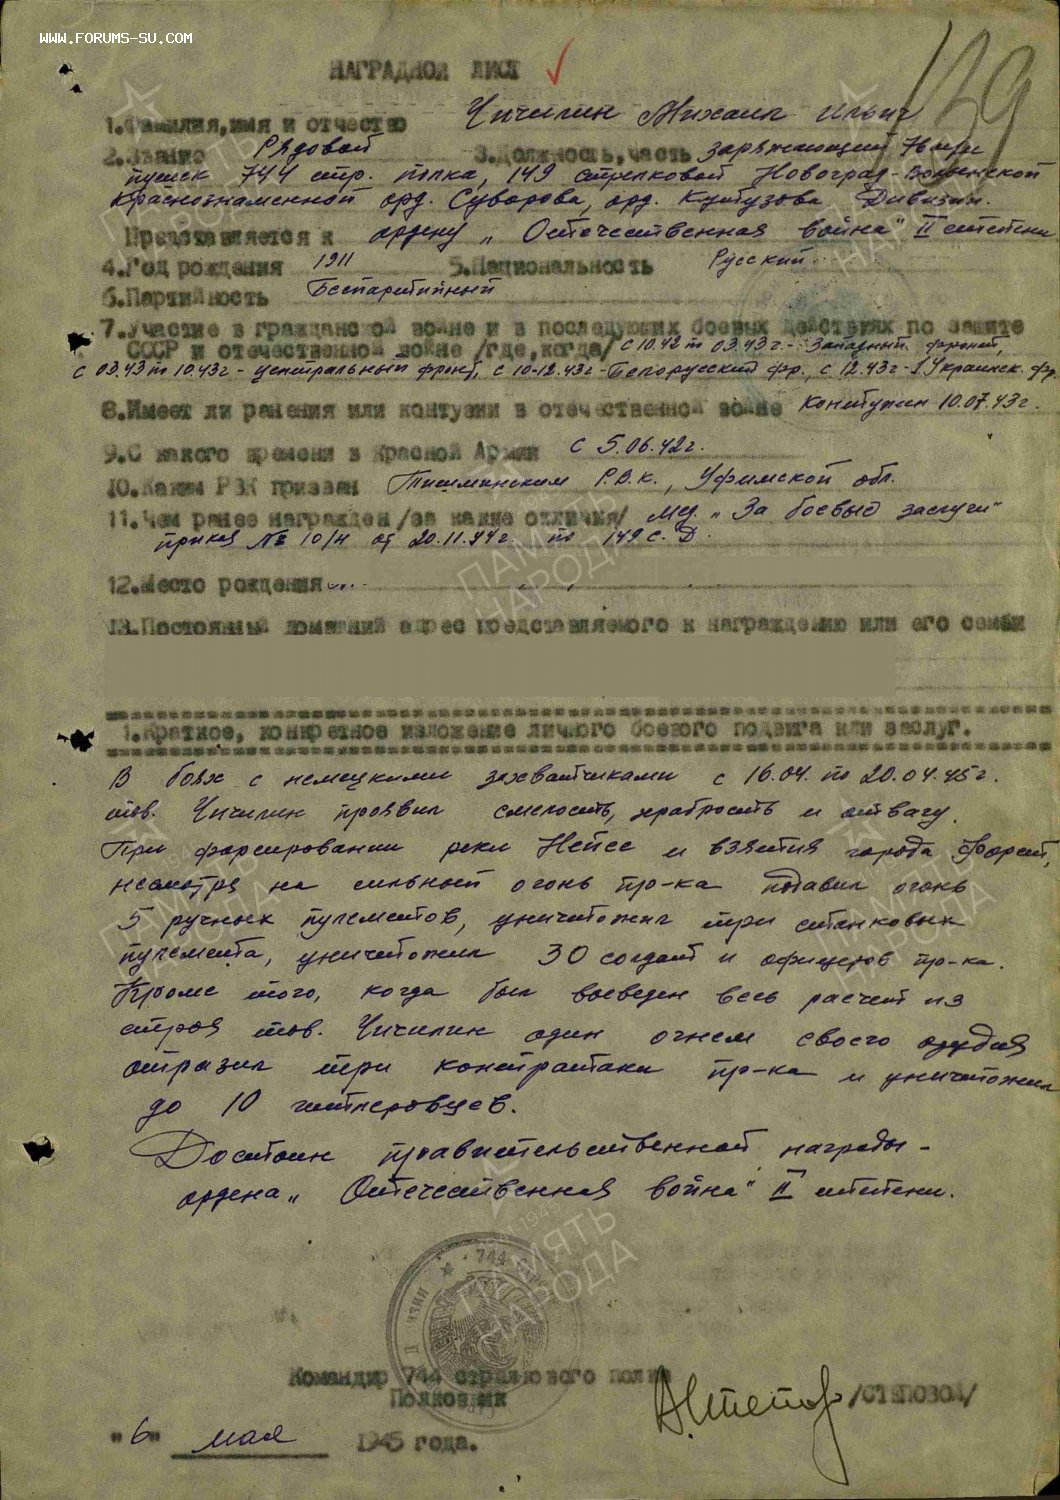 WWW.FORUMS-SU.COM
139
НАГРАДНОЙ ЛИСТ
1.Фамилия,имя и отчество Чичилин Михаил Ильич
2.Звание Рядовой 3.Должность,часть заряжающий 76 мм
пушек 744 стр. полка, 149 стрелковой Новоград-Волынской
Краснознаменной орд. Суворова, орд. Кутузова Дивизии.
Представляется к ордену „Отечественная война" II степени
4.Год рождения 1911 5.Национальность Русский
6.Партийность Беспартийный
7.Участие в гражданской войне и в последующих боевых действиях по защите
СССР и отечественной войне /где,когда/ с 10.42 по 03.43г.- Западный фронт,
с 03.43 по 10.43г - центральный фронт, с 10-12.43г-Белорусский фр., с 12.43г-1 Украинск. фр.
8.Имеет ли ранения или контузии в отечественной войне контузия 10.07.43г.
9.С какого времени в Красной Армии с 5.06.42г.
10.Каким РВК призван Р.В.К., Уфимской обл.
11.Чем ранее награжден /за какие отличия/ мед. „За боевые заслуги"
приказ № 10/н от 20.11.44г. по 149 с.Д.
12.Место рождения
13.Постоянный домашний адрес представляемого к награждению или его семьи
1.Краткое, конкретное изложение личного боевого подвига или заслуг.
В боях с немецкими захватчиками с 16.04. по 20.04.45г.
тов. Чичилин проявил смелость, храбрость и отвагу.
При форсировании реки Нейсе и взятия города Форст,
несмотря на сильный огонь пр-ка подавил огонь
5 ручных пулеметов, уничтожил три станковых
пулемета, уничтожил 30 солдат и офицеров пр-ка.
Кроме того, когда был выведен весь расчет из
строя тов. Чичилин один огнем своего орудия
отразил три контратаки пр-ка и уничтожил
до 10 гитлеровцев.
Достоин правительственной награды -
ордена „Отечественная война" II степени.
744
Командир 744 стрелкового полка
Полковник /СТЕПОВОЙ/
"6" мая 1945 года.
ПАМЯТЬ НАРОДА